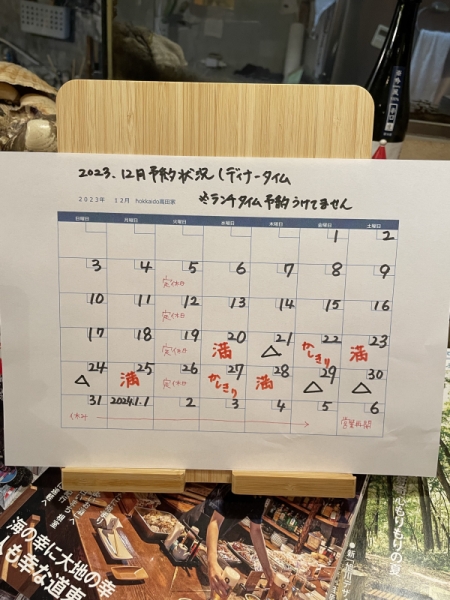 2023、12月予約状況(ディナータイム
2023年 12月 hokkaido高田家 ※ランチタイム予約うけてません
日曜日 月曜日 火曜日 水曜日 木曜日 金曜日 土曜日
1 2
3 4 5 6 7 8 9
定休日
10 11 12 13 14 15 16
定休日
17 18 19 20 21 22 23
定休日 満 △ かしきり 満
24 25 26 27 28 29 30
△ 満 定休日 かしきり 満 △ △
31 2024.1.1 2 3 4 5 6
休み 営業再開
海の幸に大地の幸
人も幸な道東
もりもりの夏